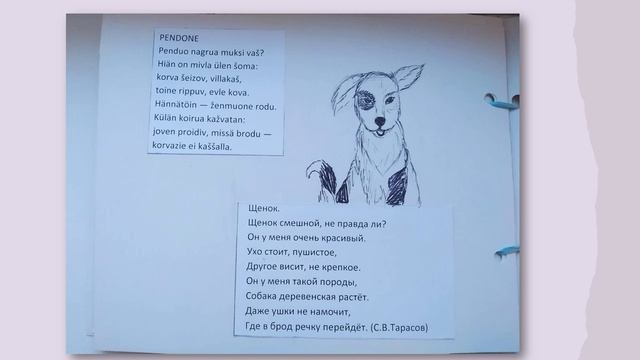 PENDONE
Penduo nagrua muksi vaš?
Hiän on mivla ülen šoma:
korva šeizov, villakaš,
toine rippuv, evle kova.
Hännätöin — ženmuone rodu.
Külän koirua kažvatan:
joven proidiv, missä brodu —
korvazie ei kaššalla.
Щенок.
Щенок смешной, не правда ли?
Он у меня очень красивый.
Ухо стоит, пушистое,
Другое висит, не крепкое.
Он у меня такой породы,
Собака деревенская растёт.
Даже ушки не намочит,
Где в брод речку перейдёт. (С.В.Тарасов)